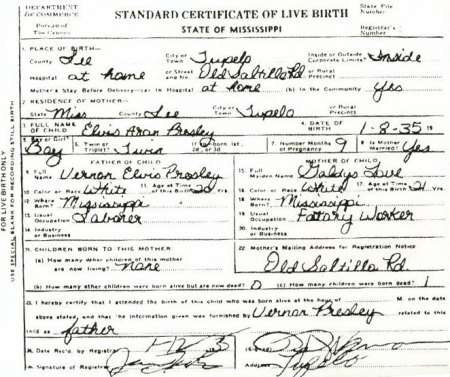 DEPARTMENT OF COMMERCE
Bureau of The Census
STANDARD CERTIFICATE OF LIVE BIRTH
STATE OF MISSISSIPPI
State File Number
Registrar's Number
1. PLACE OF BIRTH—
County Lee City or Town Tupelo Inside or Outside Corporate Limits? Inside
Hospital at home Street and No Old Saltillo Rd or Rural Precinct
Mother's Stay Before Delivery—(a) In Hospital at home (b) In the Community Yes
2. RESIDENCE OF MOTHER—
State Miss County Lee City or Town Tupelo or Rural Precinct
3. FULL NAME OF CHILD Elvis Aron Presley 4. DATE OF BIRTH 1-8-35 19
5. Boy or Girl? Boy 6. Twin or Triplet? Twin born 1st, 2d, or 3d 7. Number Months of Pregnancy 9 8. Is Mother Married? Yes
FATHER OF CHILD
MOTHER OF CHILD
9. Full Name Vernon Elvis Presley
15. Full Maiden Name Gladys Love
10. Color or Race White 11. Age at Time of This Birth Yrs.
16. Color or Race White 17. Age at Time of This Birth 21 Yrs.
12. Where Born? Mississippi
18. Where Born? Mississippi
13. Usual Occupation Laborer
19. Usual Occupation Factory Worker
14. Industry or Business
20. Industry or Business
21. CHILDREN BORN TO THIS MOTHER
22. Mother's Mailing Address for Registration Notice
(a) How many other children of this mother are now living? None
Old Saltillo Rd
(b) How many other children were born alive but are now dead? 0 (c) How many children were born dead? 1
23. I hereby certify that I attended the birth of this child who was born alive at the hour of M on the date
above stated and that the information given was furnished by Vernon Presley related to this
child as father
24. Date Rec'd by Registrar (Signed)
Signature of Registrar Address Tupelo
FOR LIVE BIRTH ONLY.
USE SPECIAL BLANK FOR RECORDING STILL BIRTH